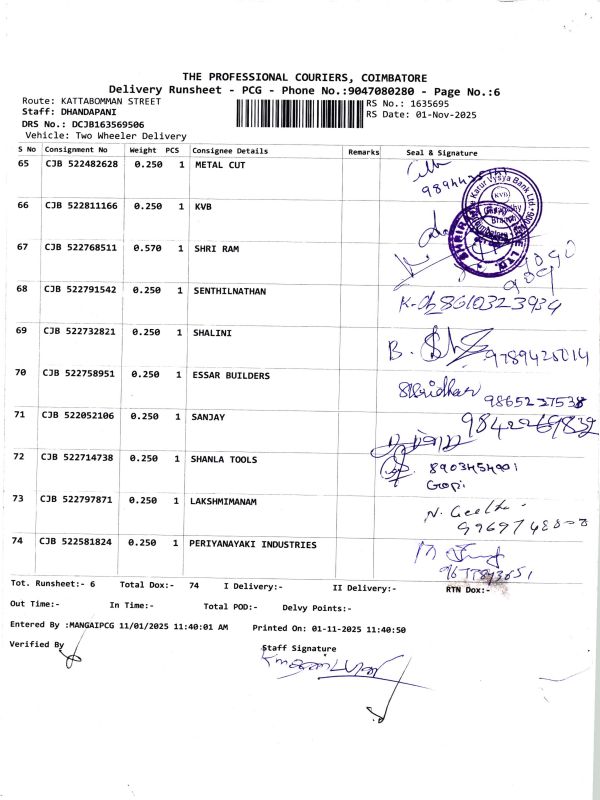 THE PROFESSIONAL COURIERS, COIMBATORE
Delivery Runsheet - PCG - Phone No.:9047080280 - Page No.:6
Route: KATTABOMMAN STREET
RS No.: 1635695
Staff: DHANDAPANI
RS Date: 01-Nov-2025
DRS No.: DCJB163569506
Vehicle: Two Wheeler Delivery
S No Consignment No Weight PCS Consignee Details Remarks Seal & Signature
65 CJB 522482628 0.250 1 METAL CUT
66 CJB 522811166 0.250 1 KVB
Karur Vysya Bank Ltd
KVB
67 CJB 522768511 0.570 1 SHRI RAM
68 CJB 522791542 0.250 1 SENTHILNATHAN 8610323934
69 CJB 522732821 0.250 1 SHALINI B.
70 CJB 522758951 0.250 1 ESSAR BUILDERS Shridhar 9865227538
71 CJB 522052106 0.250 1 SANJAY
72 CJB 522714738 0.250 1 SHANLA TOOLS
Gopi
73 CJB 522797871 0.250 1 LAKSHMIMANAM N. Geetha
74 CJB 522581824 0.250 1 PERIYANAYAKI INDUSTRIES
Tot. Runsheet:- 6 Total Dox:- 74 I Delivery:- II Delivery:- RTN Dox:-
Out Time:- In Time:- Total POD:- Delvy Points:-
Entered By :MANGAIPCG 11/01/2025 11:40:01 AM Printed On: 01-11-2025 11:40:50
Verified By Staff Signature